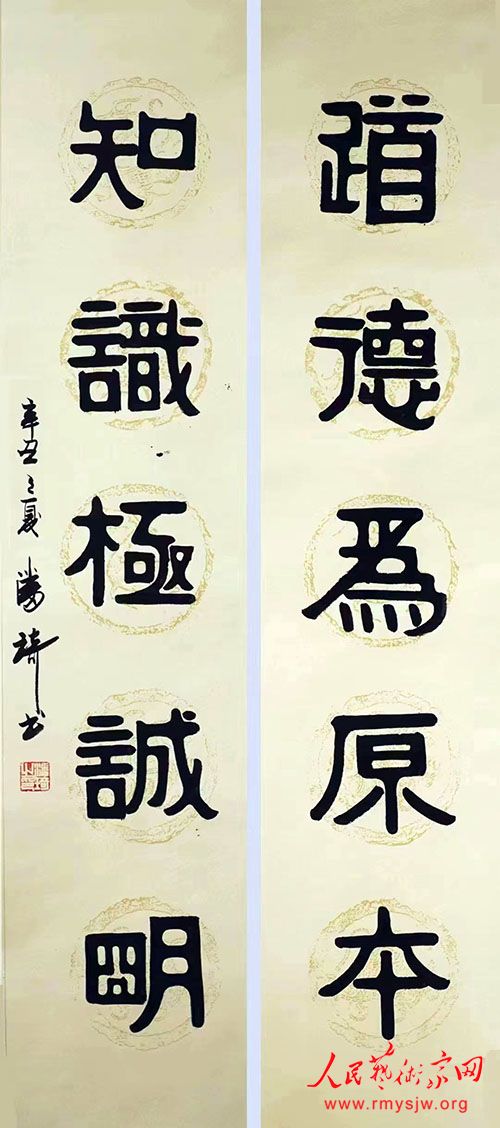 道德為原本
知識極誠明
辛丑之夏
勝琦书
人民藝術家网
www.rmysjw.org